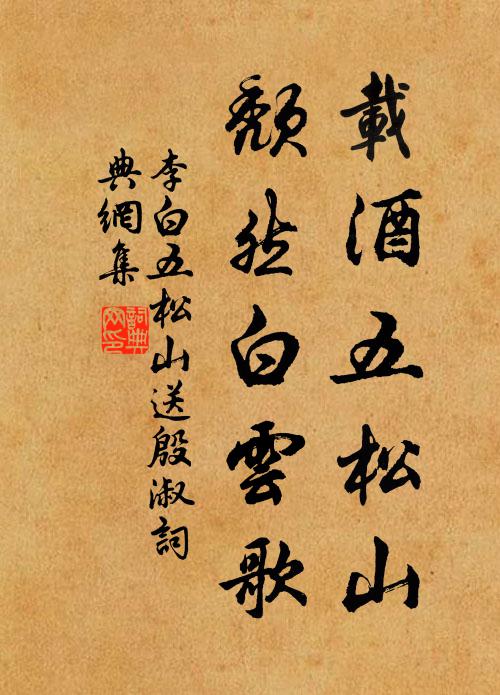 載酒五松山
頹然白雲歌
李白五松山送殷淑詞
典網集
詞典網印